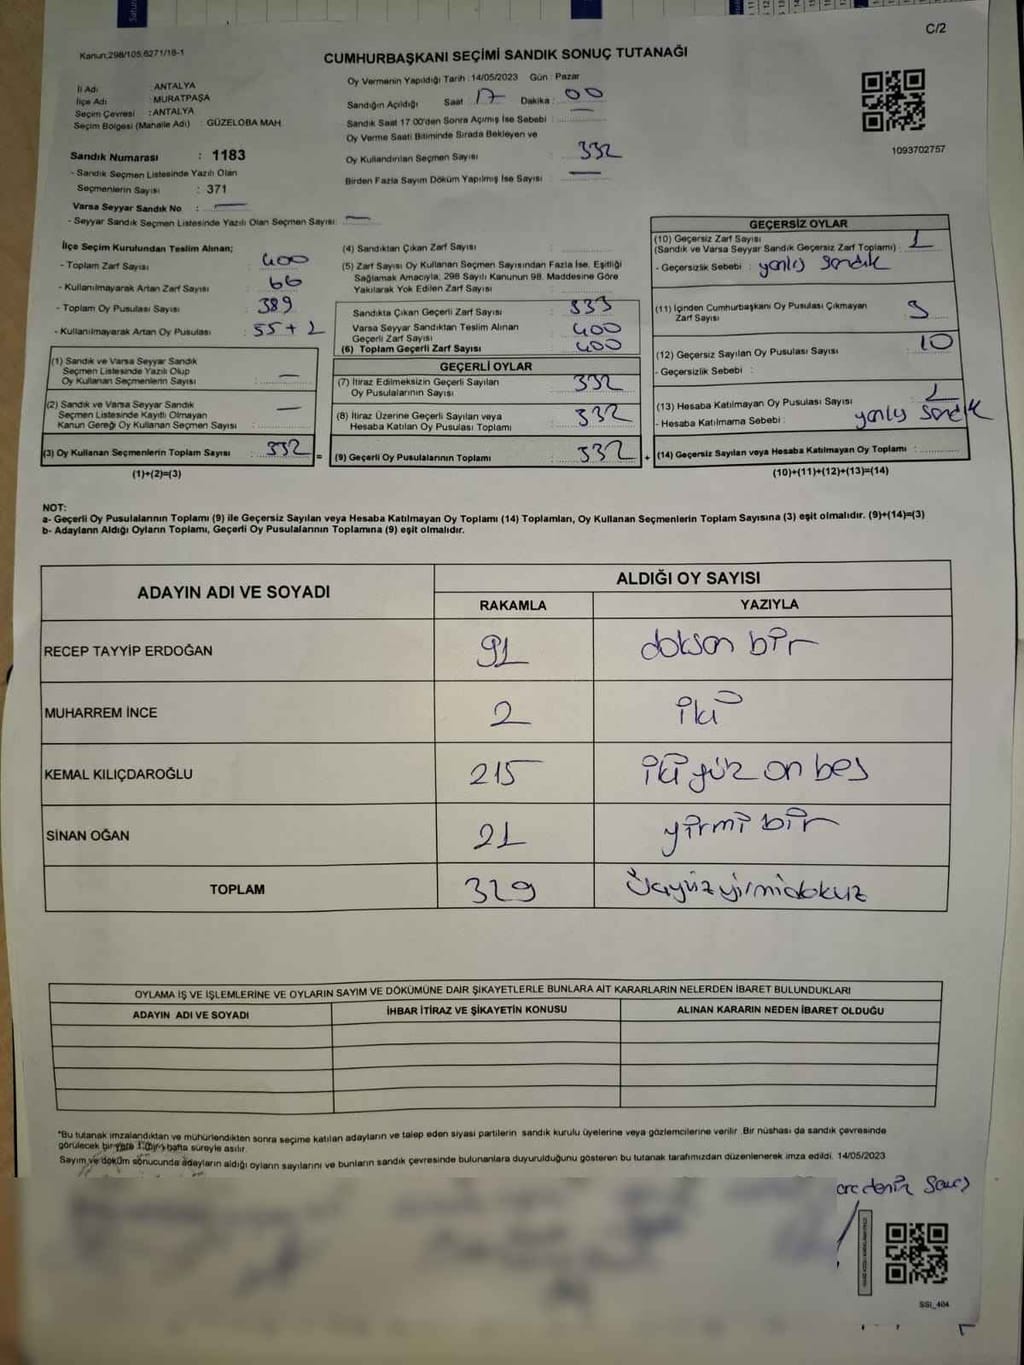 C/2
Kanun:298/105,6271/18-1
CUMHURBAŞKANI SEÇİMİ SANDIK SONUÇ TUTANAĞI
İl Adı ANTALYA
İlçe Adı : MURATPAŞA
Seçim Çevresi : ANTALYA
Seçim Bölgesi (Mahalle Adı) GÜZELOBA MAH.
Oy Vermenin Yapıldığı Tarih : 14/05/2023 Gün : Pazar
Sandığın Açıldığı Saat 17 Dakika : 00
Sandık Saat 17:00'den Sonra Açılmış İse Sebebi :
Oy Verme Saati Bitiminde Sırada Bekleyen ve
Oy Kullandırılan Seçmen Sayısı : 332
Birden Fazla Sayım Döküm Yapılmış İse Sayısı : —
1093702757
Sandık Numarası : 1183
- Sandık Seçmen Listesinde Yazılı Olan
Seçmenlerin Sayısı : 371
Varsa Seyyar Sandık No : —
- Seyyar Sandık Seçmen Listesinde Yazılı Olan Seçmen Sayısı: —
İlçe Seçim Kurulundan Teslim Alınan;
- Toplam Zarf Sayısı : 400
- Kullanılmayarak Artan Zarf Sayısı : 66
- Toplam Oy Pusulası Sayısı : 389
- Kullanılmayarak Artan Oy Pusulası : 55+2
(1) Sandık ve Varsa Seyyar Sandık
Seçmen Listesinde Yazılı Olup
Oy Kullanan Seçmenlerin Sayısı : —
(2) Sandık ve Varsa Seyyar Sandık
Seçmen Listesinde Kayıtlı Olmayan
Kanun Gereği Oy Kullanan Seçmen Sayısı : —
(3) Oy Kullanan Seçmenlerin Toplam Sayısı : 332 =
(1)+(2)=(3)
(4) Sandıktan Çıkan Zarf Sayısı :
(5) Zarf Sayısı Oy Kullanan Seçmen Sayısından Fazla İse, Eşitliği
Sağlamak Amacıyla, 298 Sayılı Kanunun 98. Maddesine Göre
Yakılarak Yok Edilen Zarf Sayısı :
Sandıkta Çıkan Geçerli Zarf Sayısı : 333
Varsa Seyyar Sandıktan Teslim Alınan
Geçerli Zarf Sayısı : 400
(6) Toplam Geçerli Zarf Sayısı : 400
GEÇERLİ OYLAR
(7) İtiraz Edilmeksizin Geçerli Sayılan
Oy Pusulalarının Sayısı : 332
(8) İtiraz Üzerine Geçerli Sayılan veya
Hesaba Katılan Oy Pusulası Toplamı : 332
(9) Geçerli Oy Pusulalarının Toplamı : 332 +
GEÇERSİZ OYLAR
(10) Geçersiz Zarf Sayısı
(Sandık ve Varsa Seyyar Sandık Geçersiz Zarf Toplamı) : 1
- Geçersizlik Sebebi : yanlış sandık
(11) İçinden Cumhurbaşkanı Oy Pusulası Çıkmayan
Zarf Sayısı : 3
(12) Geçersiz Sayılan Oy Pusulası Sayısı : 10
- Geçersizlik Sebebi :
(13) Hesaba Katılmayan Oy Pusulası Sayısı : 1
- Hesaba Katılmama Sebebi : yanlış sandık
(14) Geçersiz Sayılan veya Hesaba Katılmayan Oy Toplamı :
(10)+(11)+(12)+(13)=(14)
NOT:
a- Geçerli Oy Pusulalarının Toplamı (9) ile Geçersiz Sayılan veya Hesaba Katılmayan Oy Toplamı (14) Toplamları, Oy Kullanan Seçmenlerin Toplam Sayısına (3) eşit olmalıdır. (9)+(14)=(3)
b- Adayların Aldığı Oyların Toplamı, Geçerli Oy Pusulalarının Toplamına (9) eşit olmalıdır.
ADAYIN ADI VE SOYADI ALDIĞI OY SAYISI
RAKAMLA YAZIYLA
RECEP TAYYİP ERDOĞAN 91 doksan bir
MUHARREM İNCE 2 iki
KEMAL KILIÇDAROĞLU 215 iki yüz on beş
SİNAN OĞAN 21 yirmi bir
TOPLAM 329 üçyüzyirmidokuz
OYLAMA İŞ VE İŞLEMLERİNE VE OYLARIN SAYIM VE DÖKÜMÜNE DAİR ŞİKAYETLERLE BUNLARA AİT KARARLARIN NELERDEN İBARET BULUNDUKLARI
ADAYIN ADI VE SOYADI İHBAR İTİRAZ VE ŞİKAYETİN KONUSU ALINAN KARARIN NEDEN İBARET OLDUĞU
*Bu tutanak imzalandıktan ve mühürlendikten sonra seçime katılan adayların ve talep eden siyasi partilerin sandık kurulu üyelerine veya gözlemcilerine verilir. Bir nüshası da sandık çevresinde
görülecek bir yere 1 (bir) hafta süreyle asılır.
Sayım ve döküm sonucunda adayların aldığı oyların sayılarını ve bunların sandık çevresinde bulunanlara duyurulduğunu gösteren bu tutanak tarafımızdan düzenlenerek imza edildi. 14/05/2023
SSI_404